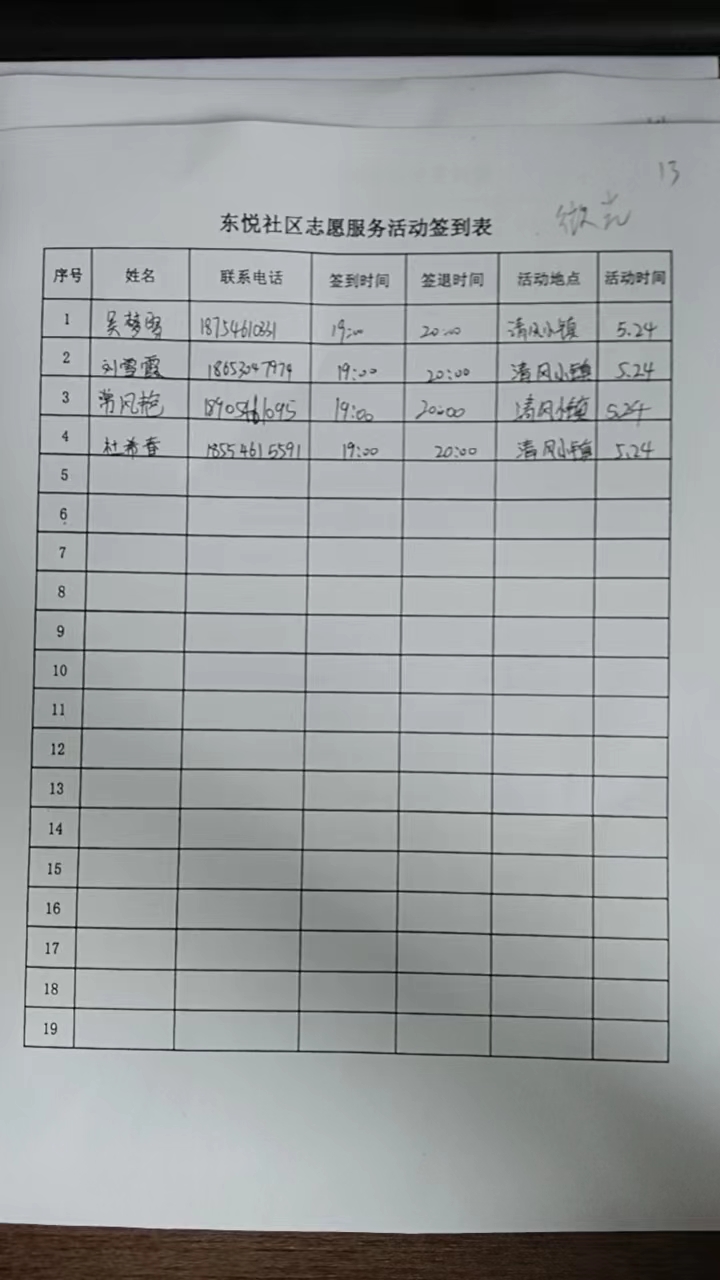 13
东悦社区志愿服务活动签到表
序号 姓名 联系电话 签到时间 签退时间 活动地点 活动时间
1 吴梦 19:00 20:00 清风小镇 5.24
2 刘雪霞 18653047974 19:00 20:00 清风小镇 5.24
3 常风艳 19:00 20:00 清风小镇 5.24
4 杜希香 18554615591 19:00 20:00 清风小镇 5.24
5
6
7
8
9
10
11
12
13
14
15
16
17
18
19